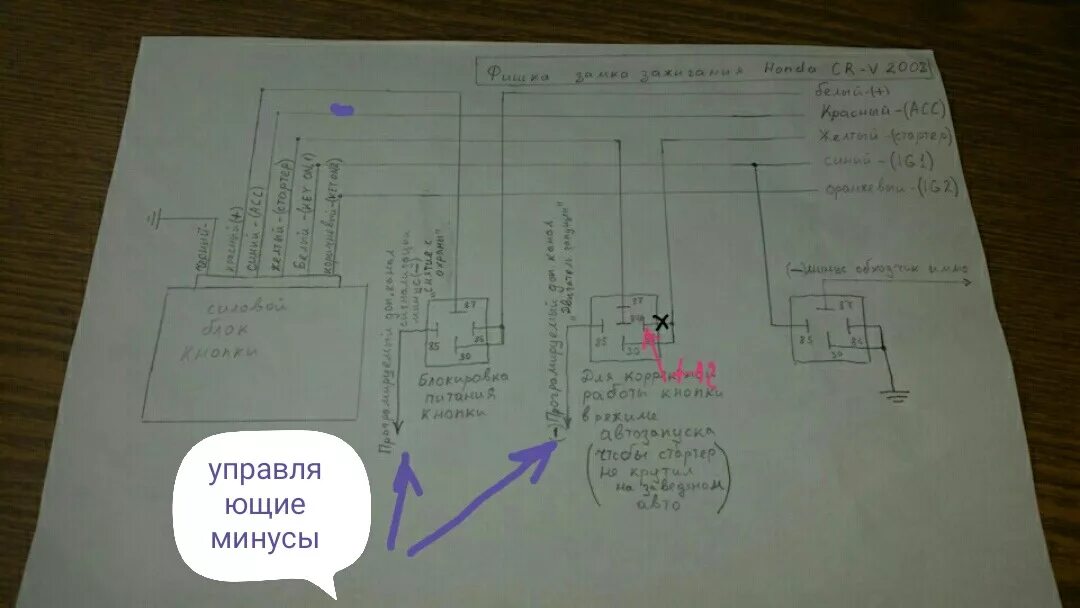 Фишка замка зажигания Honda CR-V 2008
белый-(+)
Красный-(ACC)
Желтый-(стартер)
синий-(IG1)
оранжевый-(IG2)
черный-
красный-(+)
синий-(ACC)
желтый-(стартер)
Белый-(KEY ON1)
коричневый-(KEY ON2)
силовой
блок
кнопки
Программируемый доп.канал
сигнализации
минус(-)
"снятие с
охраны"
87
85
86
30
Блокировка
питания
кнопки
(-)Програмируемый доп канал
"Двигатель запущен"
87
87а
85
30
Для корректной
работы кнопки
в режиме
автозапуска
(чтобы стартер
не крутил
на заведеном
авто)
(-)минус обходчик иммо
87
85
86
30
управля
ющие
минусы